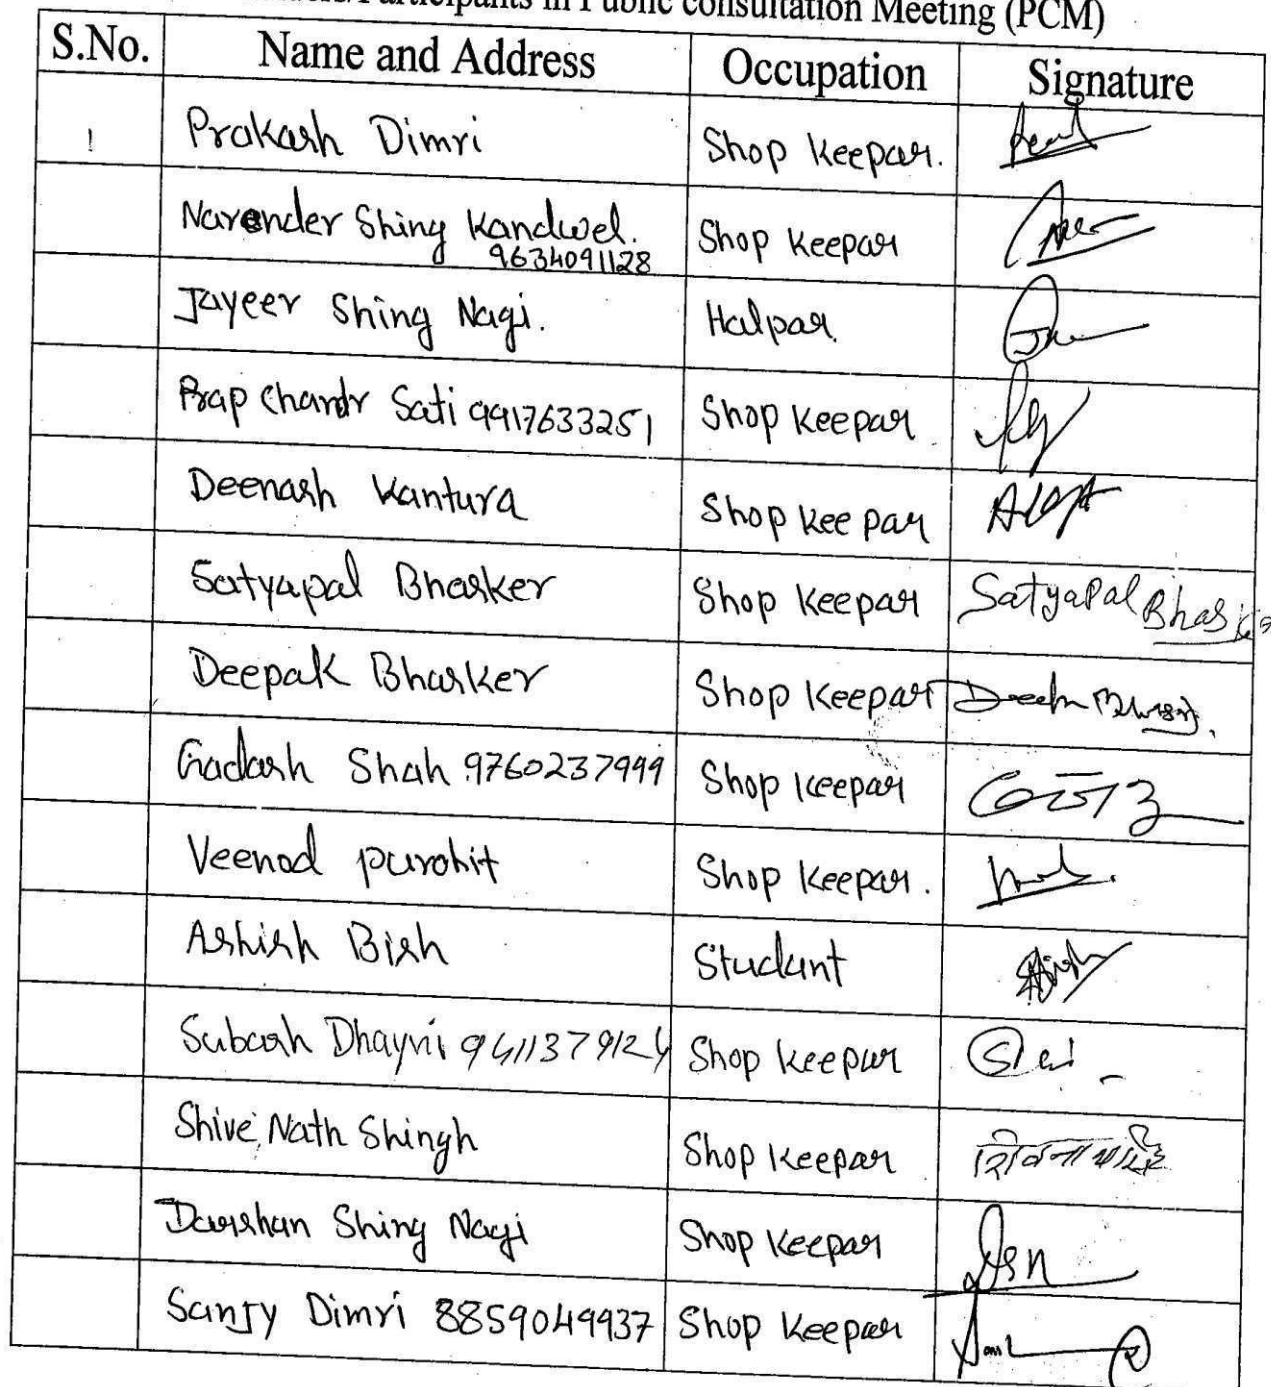 Participants in Public consultation Meeting (PCM)
S.No. Name and Address Occupation Signature
1 Prakash Dimri Shop Keepar.
Narender Shing Kandwel. Shop Keepar
9634091128
Jayeer Shing Nagi. Halpar
Prap Chandr Sati 9917633251 Shop Keepar
Deenash Kantura Shop Keepar
Satyapal Bhasker Shop Keepar Satyapal Bhasker
Deepak Bhasker Shop Keepar
Gadash Shah 9760237999 Shop Keepar
Veenod purohit Shop Keepar.
Ashish Bish Studant
Subash Dhayni 9411379124 Shop Keepar
Shive Nath Shingh Shop Keepar
Darshan Shing Nagi Shop Keepar Dsn
Sanjy Dimri 8859049937 Shop Keepar